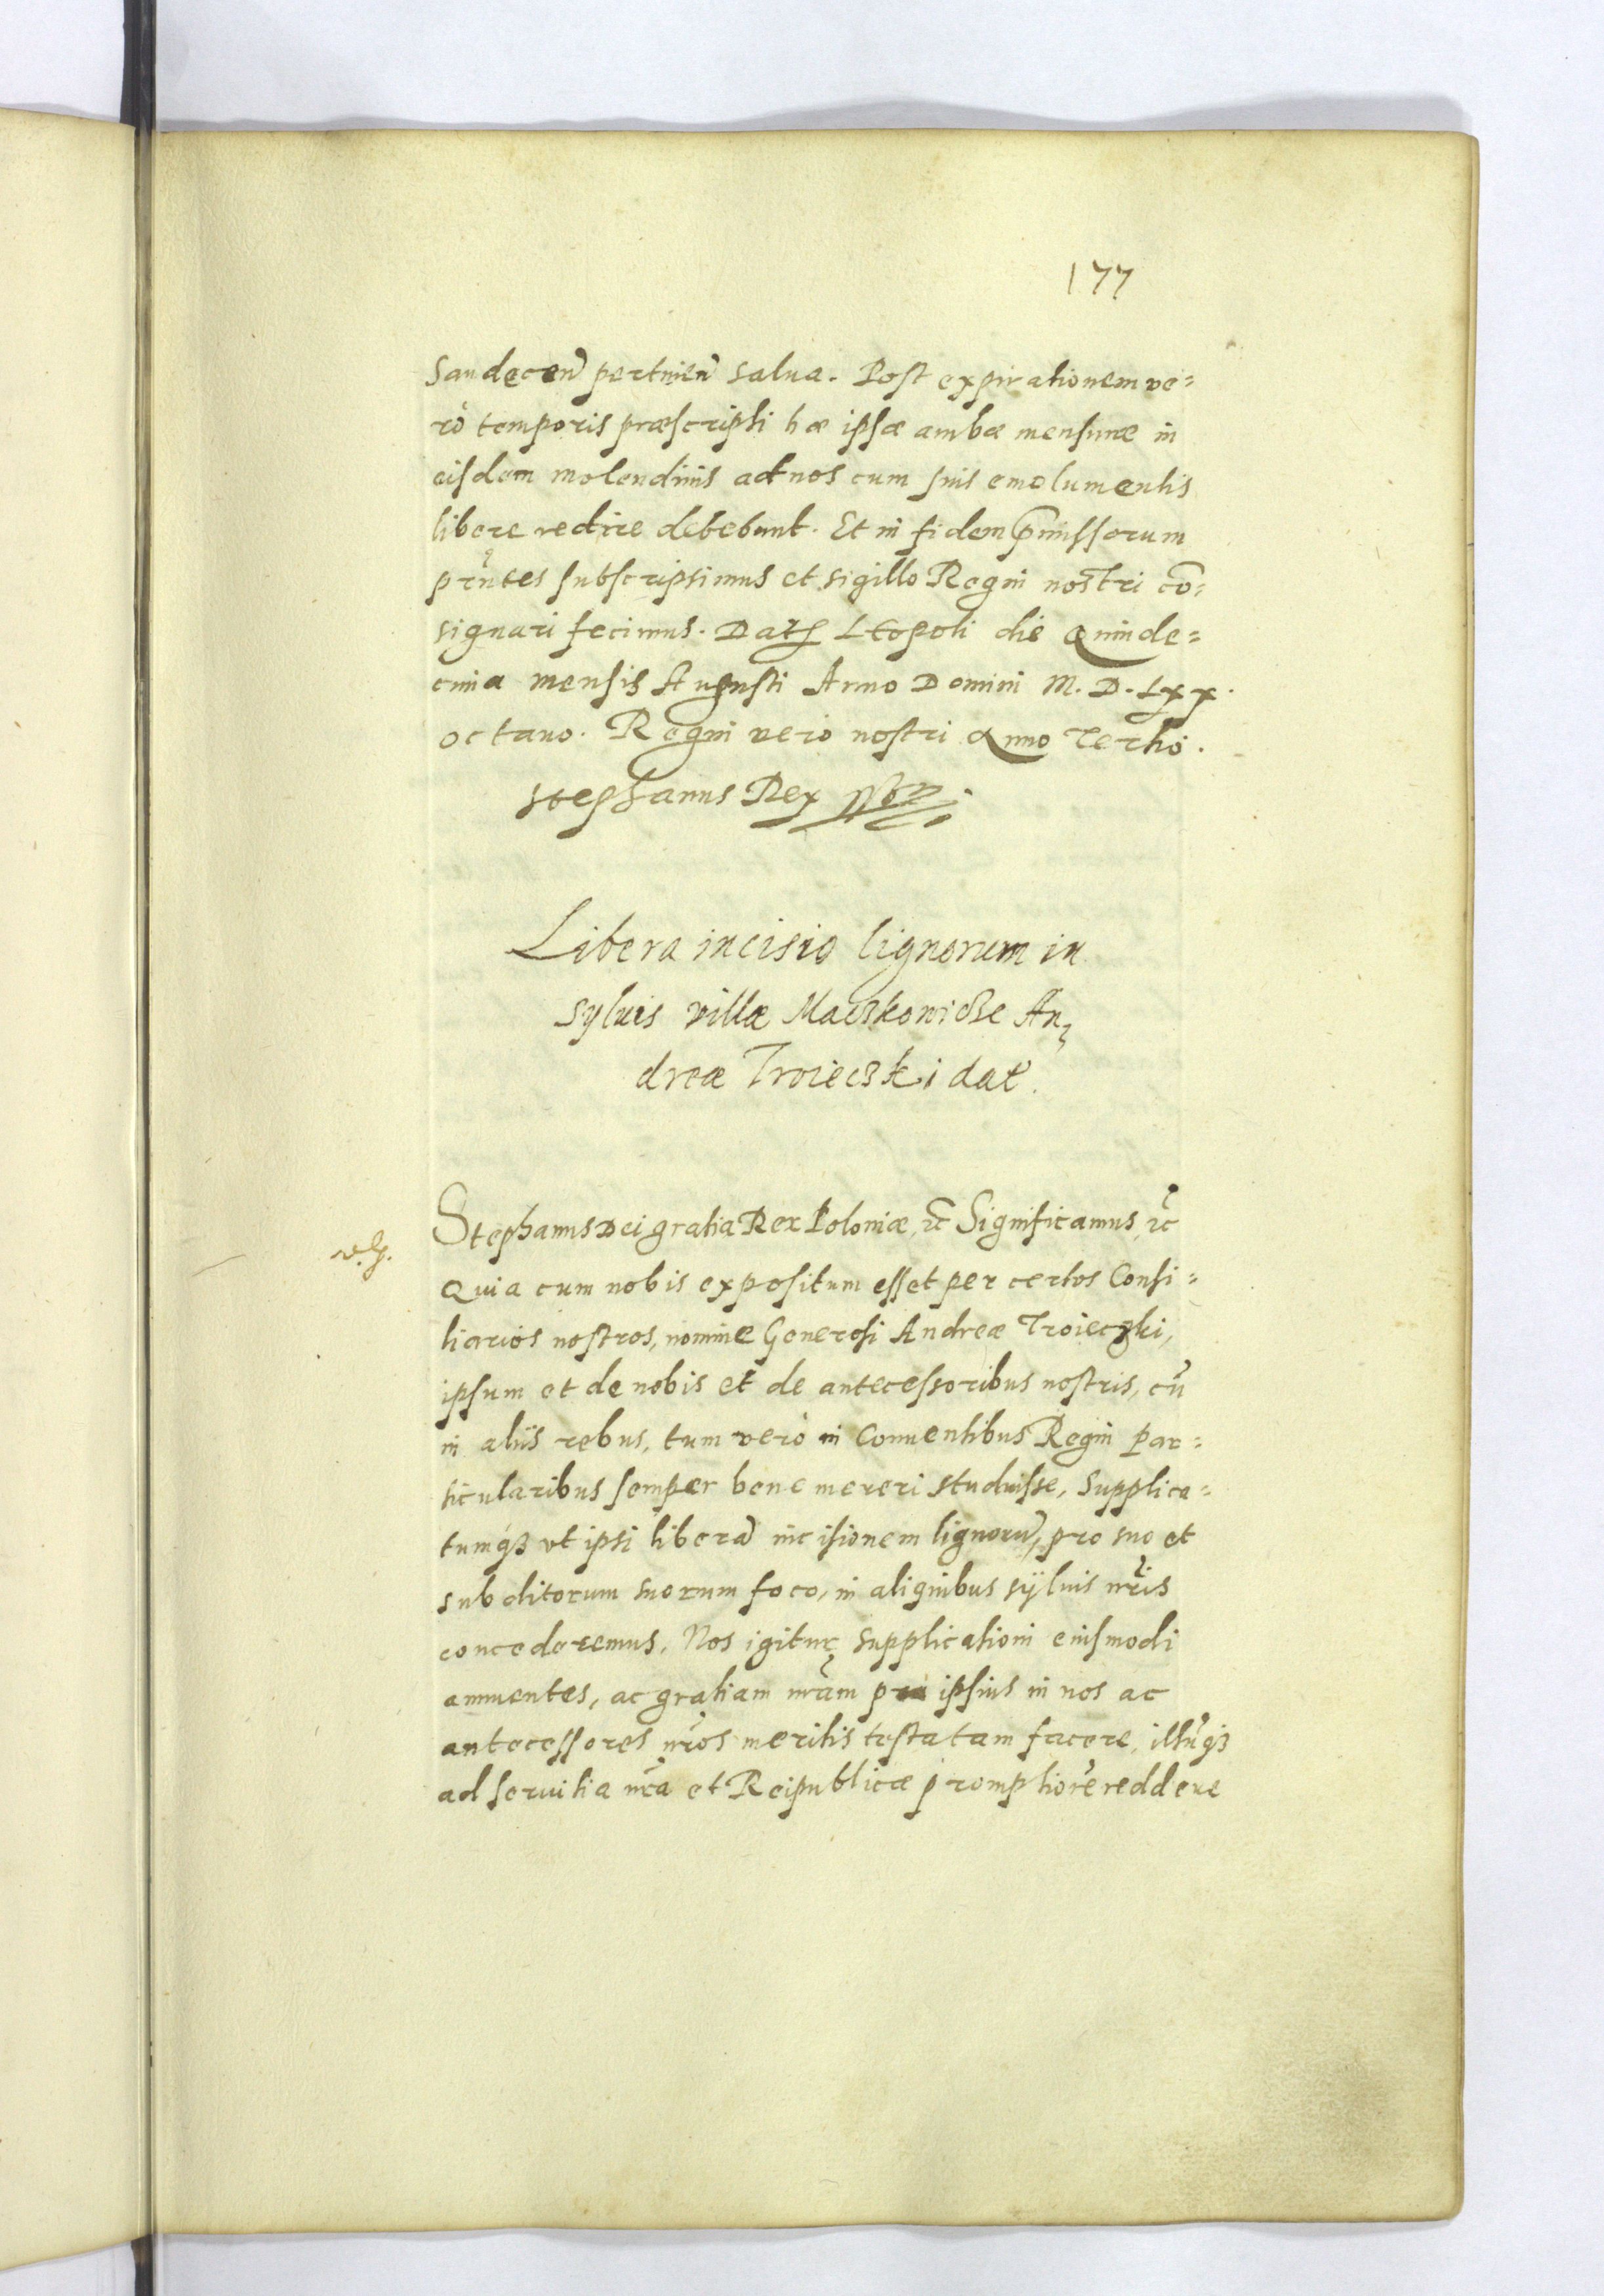 177
Sandecen̄ pertinen̄ salua. Post expirationem ve=
rò temporis præscripti hæ ipsæ ambæ mensuræ in
eisdem molendinis ad nos cum suis emolumentis
libere redire debebunt. Et in fidem p̄missorum
pñtes subscripsimus et sigillo Regni nostri cō=
signari fecimus. Datt Leopoli die Quinde=
cima mensis Augusti Anno Domini M. D. Lxx.
octauo. Regni verò nostri Anno Tertio.
Stephanus Rex
Libera incisio lignorum in
syluis villæ Maczkowicze An=
dreæ Troieczki dat̄.
Stephanus Dei gratia Rex Poloniæ, ꝛc̄ Significamus, ꝛc̄
Quia cum nobis expositum esset per certos Consi=
liarios nostros, nomine Generosi Andreæ Troieczki,
ipsum et de nobis et de antecessoribus nostris, cū
in alijs rebus, tum verò in Conuentibus Regni par=
ticularibus semper bene mereri studuisse, Supplica=
tumq́ꝫ vt ipsi liberā incisionem lignorū, pro suo et
subditorum suorum foco, in aliquibus syluis nr̄is
concederemus. Nos igitur supplicationi eiusmodi
annuentes, ac gratiam nr̄am pro ipsius in nos ac
antecessores nr̄os meritis testatam facere, illūqꝫ
ad seruitia nr̄a et Reipublicæ promptiorē reddere